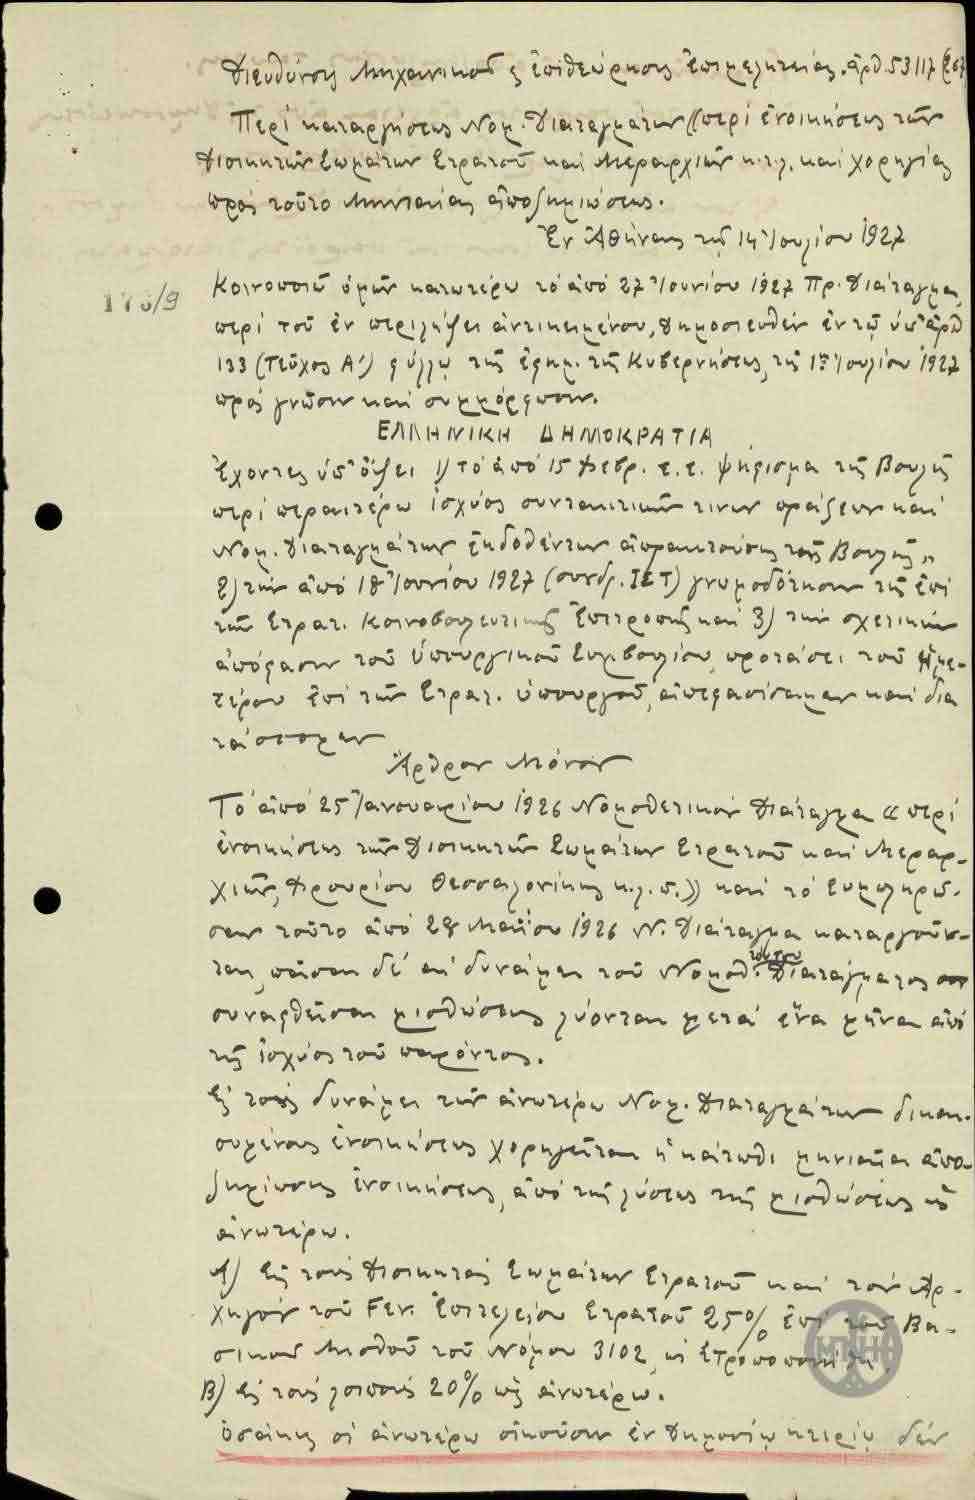 Διευθύνσις Μηχανικοῦ ς ἐπιθεώρησις Ἐπιμελητείας. ἀρθ. 53117
Περί καταργήσεως Νομ. Διαταγμάτων ((περί ἐνοικήσεως τῶν
Διοικητῶν Σωμάτων Στρατοῦ καί Μεραρχιῶν κ.τ.λ. καί χορηγίας
πρός τοῦτο Μηνιαίας ἀποζημιώσεως.
Ἐν Ἀθήναις τῇ 14 Ἰουλίου 1927
Κοινοποιῶ ὑμῖν κατωτέρω τό ἀπό 27 Ἰουνίου 1927 Πρ. Διάταγμα,
περί τοῦ ἐν περιλήψει ἀντικειμένου, δημοσιευθέν ἐν τῷ ὑπ' ἀρθ
133 (Τεῦχος Α') φύλλῳ τῆς ἐφημ. τῆς Κυβερνήσεως, τῆς 1ης Ἰουλίου 1927
πρός γνῶσιν καί συμμόρφωσιν.
ΕΛΛΗΝΙΚΗ ΔΗΜΟΚΡΑΤΙΑ
Ἔχοντες ὑπ' ὄψει 1) τό ἀπό 15 Φεβρ. ε.ε. ψήφισμα τῆς Βουλῆς
περί περαιτέρω ἰσχύος συντακτικῶν τινων πράξεων καί
Νομ. Διαταγμάτων ἐκδοθέντων ἀπρακτούσης τῆς Βουλῆς,,
2) τήν ἀπό 18 Ἰουνίου 1927 (συνδρ. ΙΣΤ) γνωμοδότησιν τῆς ἐπί
τῶν Στρατ. Κοινοβουλευτικῆς Ἐπιτροπῆς καί 3) τήν σχετικήν
ἀπόφασιν τοῦ Ὑπουργικοῦ Συμβουλίου, προτάσει τοῦ Ἡμε-
τέρου ἐπί τῶν Στρατ. ὑπουργοῦ, ἀπεφασίσαμεν καί δια
τάσσομεν
Ἄρθρον Μόνον
Τό ἀπό 25 Ἰανουαρίου 1926 Νομοθετικόν Διάταγμα « περί
ἐνοικήσεως τῶν Διοικητῶν Σωμάτων Στρατοῦ καί Μεραρ-
χιῶν, Φρουρίου Θεσσαλονίκης κ.λ.π.)) καί τό Συμπληρῶ-
σαν τοῦτο ἀπό 28 Μαΐου 1926 Ν. Διάταγμα καταργοῦν-
ται, πᾶσαι δέ αἱ δυνάμει τοῦ Νομοθ. τούτου Διατάγματος
συναφθεῖσαι μισθώσεις λύονται μετά ἕνα μῆνα ἀπό
τῆς ἰσχύος τοῦ παρόντος.
Εἰς τούς δυνάμει τῶν ἀνωτέρω Νομ. Διαταγμάτων δικαι-
ουμένους ἐνοικήσεως χορηγεῖται ἡ κάτωθι μηνιαία ἀπο-
ζημίωσις ἐνοικήσεως, ἀπό τῆς λύσεως τῆς μισθώσεως ὡς
ἀνωτέρω.
Α) Εἰς τούς Διοικητάς Σωμάτων Στρατοῦ καί τόν Ἀρ-
χηγόν τοῦ Γεν. Ἐπιτελείου Στρατοῦ 25% ἐπί τοῦ Βα-
σικοῦ Μισθοῦ τοῦ Νόμου 3102, ὡς ἐτροποποιήθη,
Β) Εἰς τούς λοιπούς 20% ὡς ἀνωτέρω.
Ὁσάκις οἱ ἀνωτέρω οἰκοῦσιν ἐν Δημοσίῳ κτιρίῳ δέν